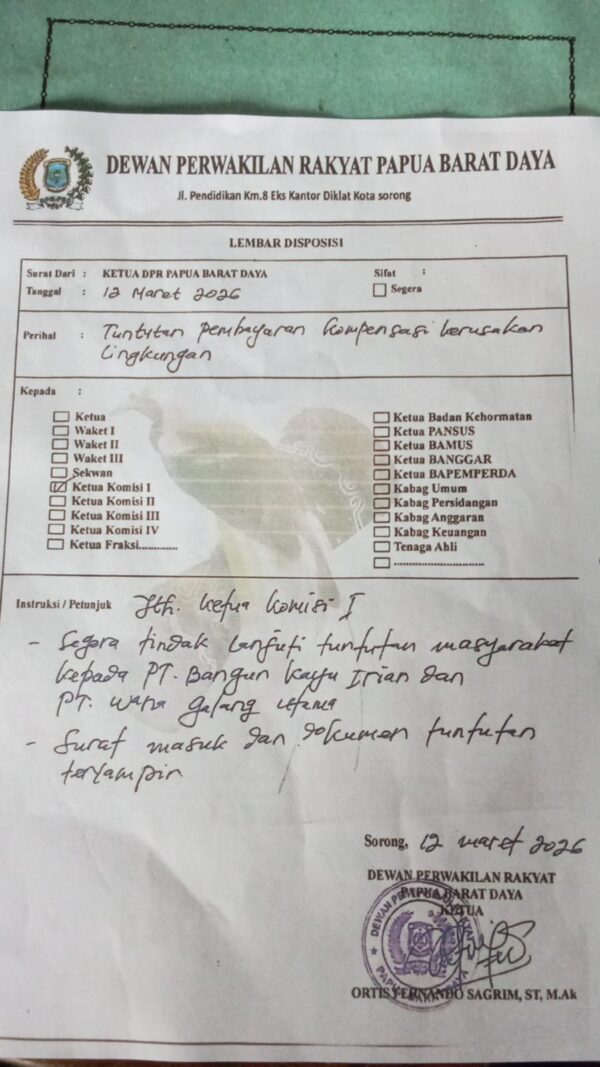 DEWAN PERWAKILAN RAKYAT PAPUA BARAT DAYA
Jl. Pendidikan Km.8 Eks Kantor Diklat Kota sorong
LEMBAR DISPOSISI
Surat Dari : KETUA DPR PAPUA BARAT DAYA
Tanggal : 12 Maret 2026
Sifat :
Segera
Perihal : Tuntutan pembayaran kompensasi kerusakan
Lingkungan
Kepada :
Ketua
Waket I
Waket II
Waket III
Sekwan
Ketua Komisi I
Ketua Komisi II
Ketua Komisi III
Ketua Komisi IV
Ketua Fraksi............
Ketua Badan Kehormatan
Ketua PANSUS
Ketua BAMUS
Ketua BANGGAR
Ketua BAPEMPERDA
Kabag Umum
Kabag Persidangan
Kabag Anggaran
Kabag Keuangan
Tenaga Ahli
............................
Instruksi / Petunjuk Yth. Ketua Komisi I
- Segera tindak lanjuti tuntutan masyarakat
kepada PT. Bangun Kayu Irian dan
PT. Wana Galang Utama
- Surat masuk dan dokumen tuntutan
terlampir
Sorong, 12 maret 2026
DEWAN PERWAKILAN RAKYAT
PAPUA BARAT DAYA
KETUA
ORTIS FERNANDO SAGRIM, ST, M.Ak